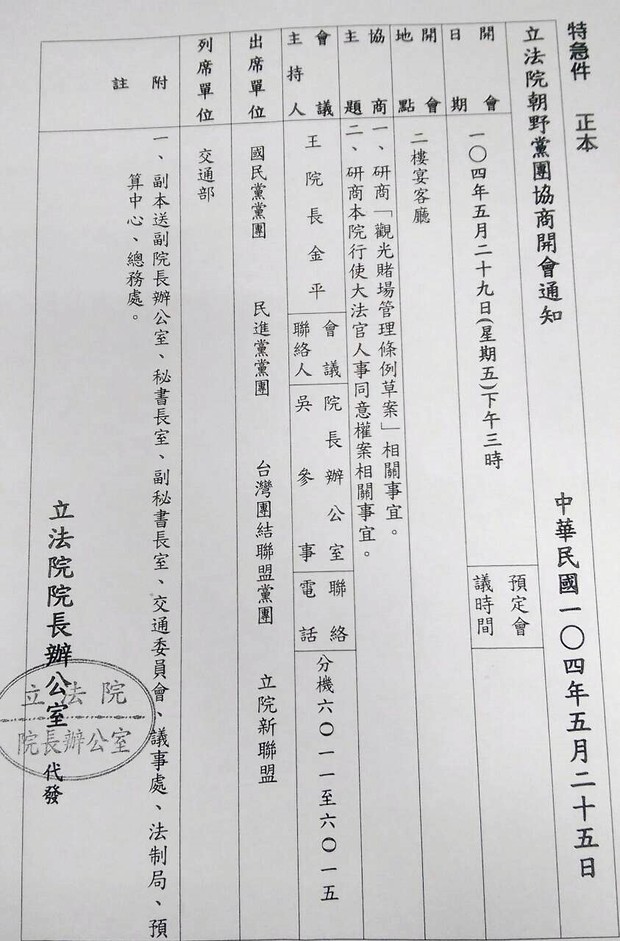 特急件 正本
立法院朝野黨團協商開會通知
中華民國一〇四年五月二十五日
開會日期
一〇四年五月二十九日(星期五)下午三時
預定會議時間
開會地點
二樓宴客廳
協商主題
一、研商「觀光賭場管理條例草案」相關事宜。
二、研商本院行使大法官人事同意權案相關事宜。
會議主持人
王院長金平
會議聯絡人
院長辦公室
吳參事
聯絡電話
分機六〇一一至六〇一五
出席單位
國民黨黨團 民進黨黨團 台灣團結聯盟黨團 立院新聯盟
列席單位
交通部
附註
一、副本送副院長辦公室、秘書長室、副秘書長室、交通委員會、議事處、法制局、預
算中心、總務處。
立法院院長辦公室 代發
立法院
院長辦公室